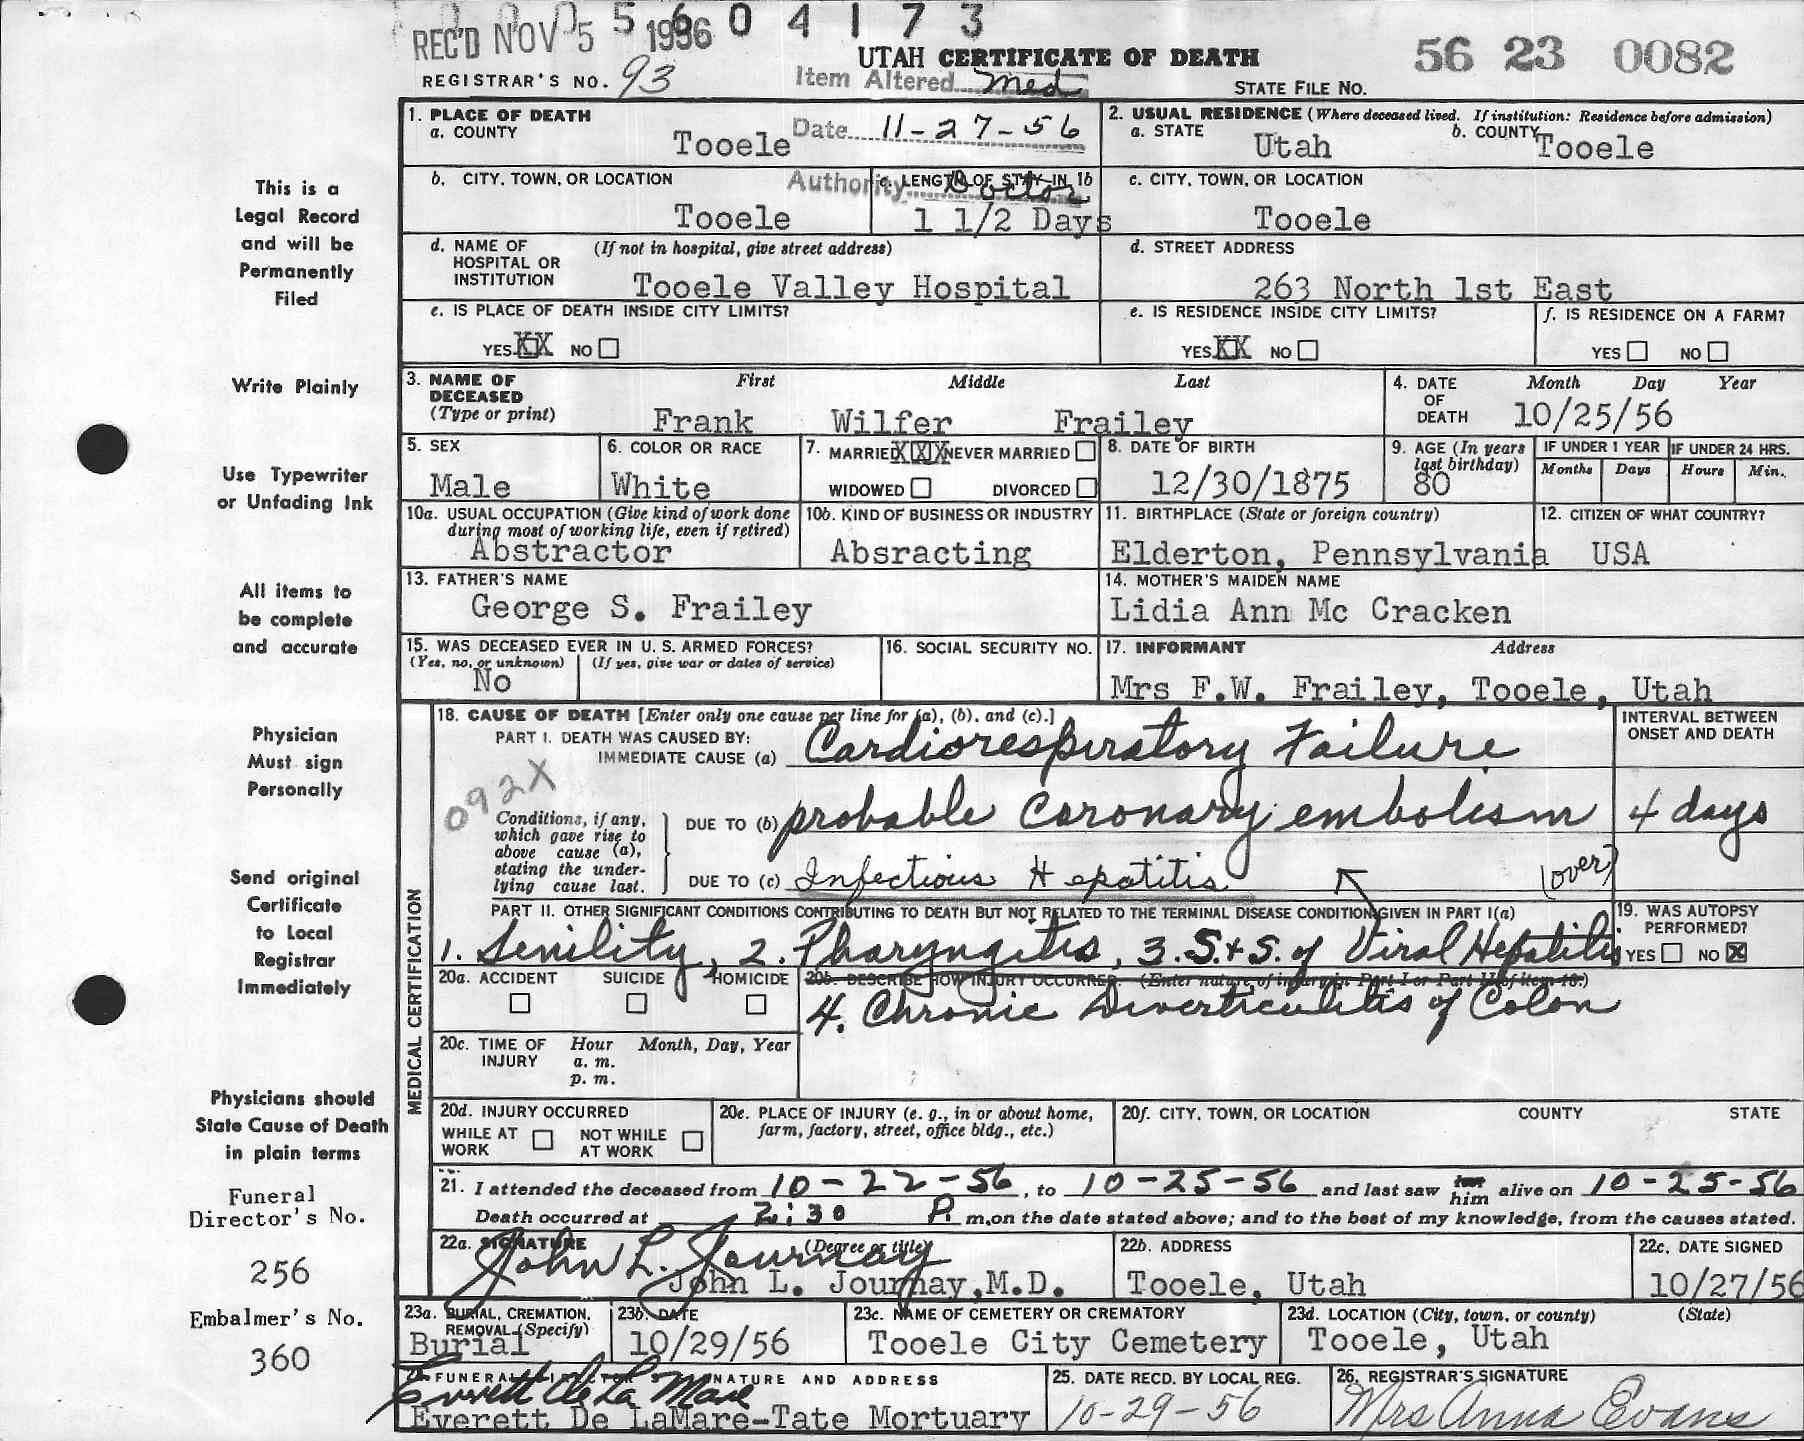 0 0 0 5 6 0 4 1 7 3
REC'D NOV 5 1956
UTAH CERTIFICATE OF DEATH
56 23 0082
REGISTRAR'S NO. 93
Item Altered Med
STATE FILE No.
Date 11-27-56
Authority Doctor
This is a
Legal Record
and will be
Permanently
Filed
Write Plainly
Use Typewriter
or Unfading Ink
All items to
be complete
and accurate
Physician
Must sign
Personally
Send original
Certificate
to Local
Registrar
Immediately
Physicians should
State Cause of Death
in plain terms
Funeral
Director's No.
256
Embalmer's No.
360
1. PLACE OF DEATH
a. COUNTY
Tooele
2. USUAL RESIDENCE (Where deceased lived. If institution: Residence before admission)
a. STATE
Utah
b. COUNTY
Tooele
b. CITY, TOWN, OR LOCATION
Tooele
c. LENGTH OF STAY IN 1b
1 1/2 Days
c. CITY, TOWN, OR LOCATION
Tooele
d. NAME OF HOSPITAL OR INSTITUTION (If not in hospital, give street address)
Tooele Valley Hospital
d. STREET ADDRESS
263 North 1st East
e. IS PLACE OF DEATH INSIDE CITY LIMITS?
YES XX NO
e. IS RESIDENCE INSIDE CITY LIMITS?
YES XX NO
f. IS RESIDENCE ON A FARM?
YES NO
3. NAME OF DECEASED (Type or print)
First Middle Last
Frank Wilfer Frailey
4. DATE OF DEATH
Month Day Year
10/25/56
5. SEX
Male
6. COLOR OR RACE
White
7. MARRIED XXX NEVER MARRIED
WIDOWED DIVORCED
8. DATE OF BIRTH
12/30/1875
9. AGE (In years last birthday)
80
IF UNDER 1 YEAR
Months Days
IF UNDER 24 HRS.
Hours Min.
10a. USUAL OCCUPATION (Give kind of work done during most of working life, even if retired)
Abstractor
10b. KIND OF BUSINESS OR INDUSTRY
Absracting
11. BIRTHPLACE (State or foreign country)
Elderton, Pennsylvania
12. CITIZEN OF WHAT COUNTRY?
USA
13. FATHER'S NAME
George S. Frailey
14. MOTHER'S MAIDEN NAME
Lidia Ann Mc Cracken
15. WAS DECEASED EVER IN U. S. ARMED FORCES?
(Yes, no, or unknown) (If yes, give war or dates of service)
No
16. SOCIAL SECURITY NO.
17. INFORMANT Address
Mrs F.W. Frailey, Tooele, Utah
MEDICAL CERTIFICATION
18. CAUSE OF DEATH [Enter only one cause per line for (a), (b), and (c).]
INTERVAL BETWEEN ONSET AND DEATH
PART I. DEATH WAS CAUSED BY:
IMMEDIATE CAUSE (a) Cardiorespiratory Failure
092X
Conditions, if any, which gave rise to above cause (a), stating the underlying cause last.
DUE TO (b) probable coronary embolism 4 days
DUE TO (c) Infectious Hepatitis (over)
PART II. OTHER SIGNIFICANT CONDITIONS CONTRIBUTING TO DEATH BUT NOT RELATED TO THE TERMINAL DISEASE CONDITION GIVEN IN PART I(a)
1. Senility, 2. Pharyngitis, 3. S. & S. of Viral Hepatitis
19. WAS AUTOPSY PERFORMED?
YES NO X
20a. ACCIDENT SUICIDE HOMICIDE
20b. DESCRIBE HOW INJURY OCCURRED. (Enter nature of injury in Part I or Part II of item 18.)
4. Chronic Diverticulitis of Colon
20c. TIME OF INJURY Hour Month, Day, Year
a. m.
p. m.
20d. INJURY OCCURRED
WHILE AT WORK NOT WHILE AT WORK
20e. PLACE OF INJURY (e. g., in or about home, farm, factory, street, office bldg., etc.)
20f. CITY, TOWN, OR LOCATION COUNTY STATE
21. I attended the deceased from 10-22-56, to 10-25-56 and last saw him alive on 10-25-56
Death occurred at 2:30 P. m, on the date stated above; and to the best of my knowledge, from the causes stated.
22a. SIGNATURE (Degree or title)
John L. Journay
John L. Journay, M.D.
22b. ADDRESS
Tooele, Utah
22c. DATE SIGNED
10/27/56
23a. BURIAL, CREMATION, REMOVAL (Specify)
Burial
23b. DATE
10/29/56
23c. NAME OF CEMETERY OR CREMATORY
Tooele City Cemetery
23d. LOCATION (City, town, or county) (State)
Tooele, Utah
FUNERAL DIRECTOR'S SIGNATURE AND ADDRESS
Everett De La Mare
Everett De LaMare-Tate Mortuary
25. DATE RECD. BY LOCAL REG.
10-29-56
26. REGISTRAR'S SIGNATURE
Mrs Anna Evans